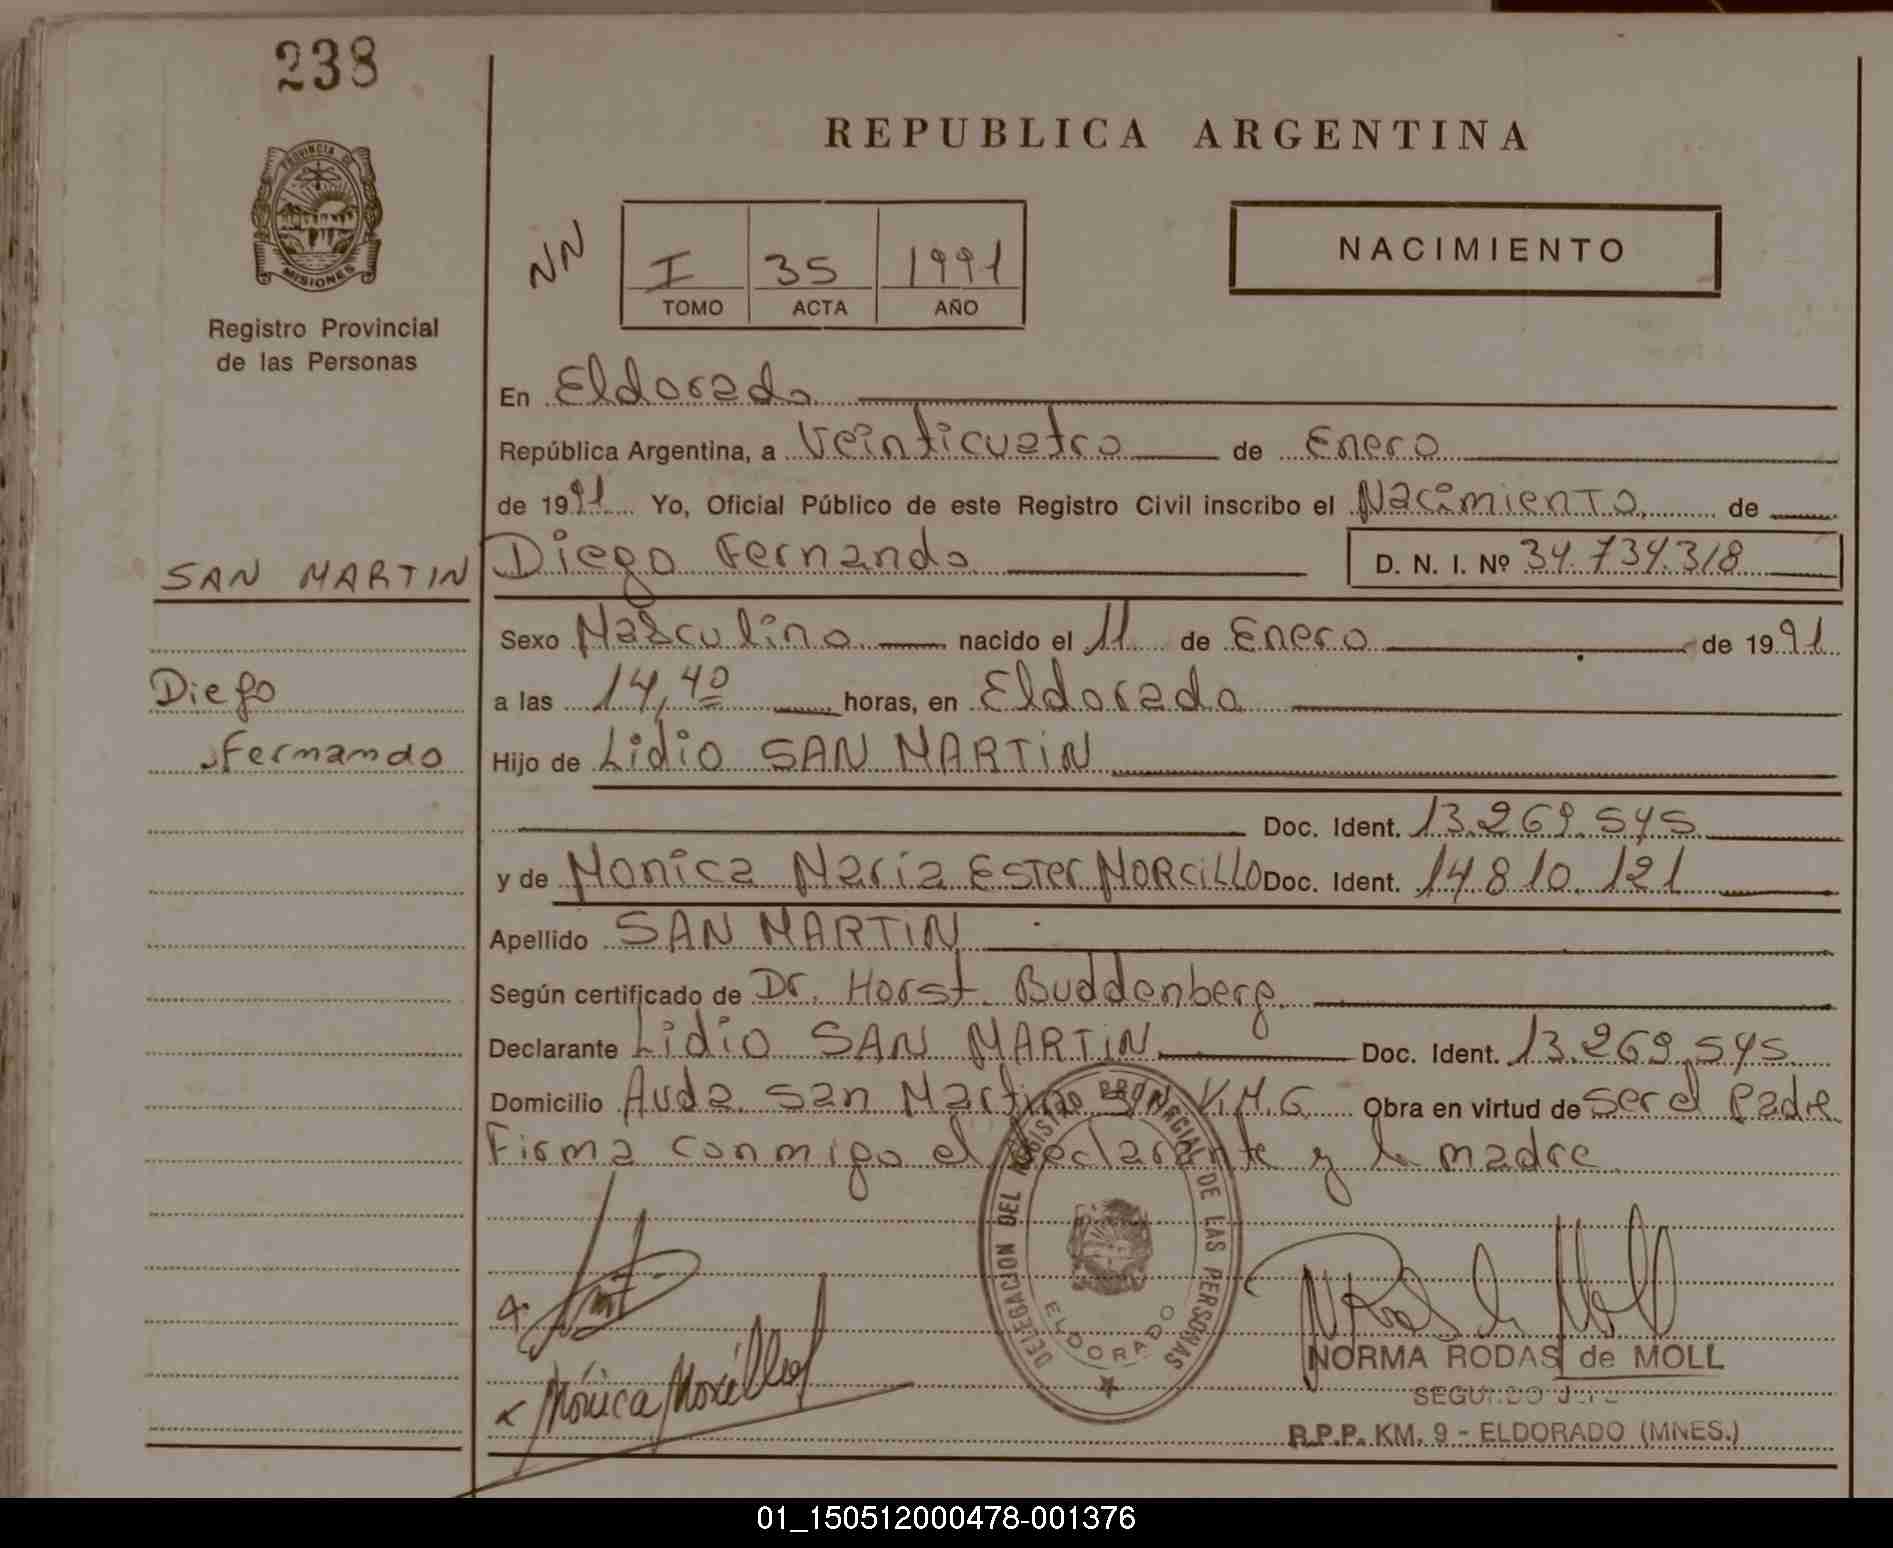 238
REPUBLICA ARGENTINA
PROVINCIA DE
MISIONES
Registro Provincial
de las Personas
NN
I 35 1991
TOMO ACTA AÑO
NACIMIENTO
En Eldorado
República Argentina, a Veinticuatro de Enero
de 1991 Yo, Oficial Público de este Registro Civil inscribo el Nacimiento de
SAN MARTIN
Diego Fernando D. N. I. Nº 34.734.318
Sexo Masculino nacido el 11 de Enero de 1991
Diego
a las 14,40 horas, en Eldorado
Fernando
Hijo de Lidio SAN MARTIN
Doc. Ident. 13.269.545
y de Monica Maria Ester MORCILLO Doc. Ident. 14.810.121
Apellido SAN MARTIN
Según certificado de Dr. Horst Buddenberg
Declarante Lidio SAN MARTIN Doc. Ident. 13.269.545
Domicilio Avda. San Martin K.M.6 Obra en virtud de ser el Padre
Firma conmigo el declarante y la madre
DELEGACION DEL REGISTRO PROVINCIAL DE LAS PERSONAS
ELDORADO
Mónica Morcillo
NRodas de Moll
NORMA RODAS de MOLL
SEGUNDO JEFE
R.P.P. KM. 9 - ELDORADO (MNES.)
01_150512000478-001376